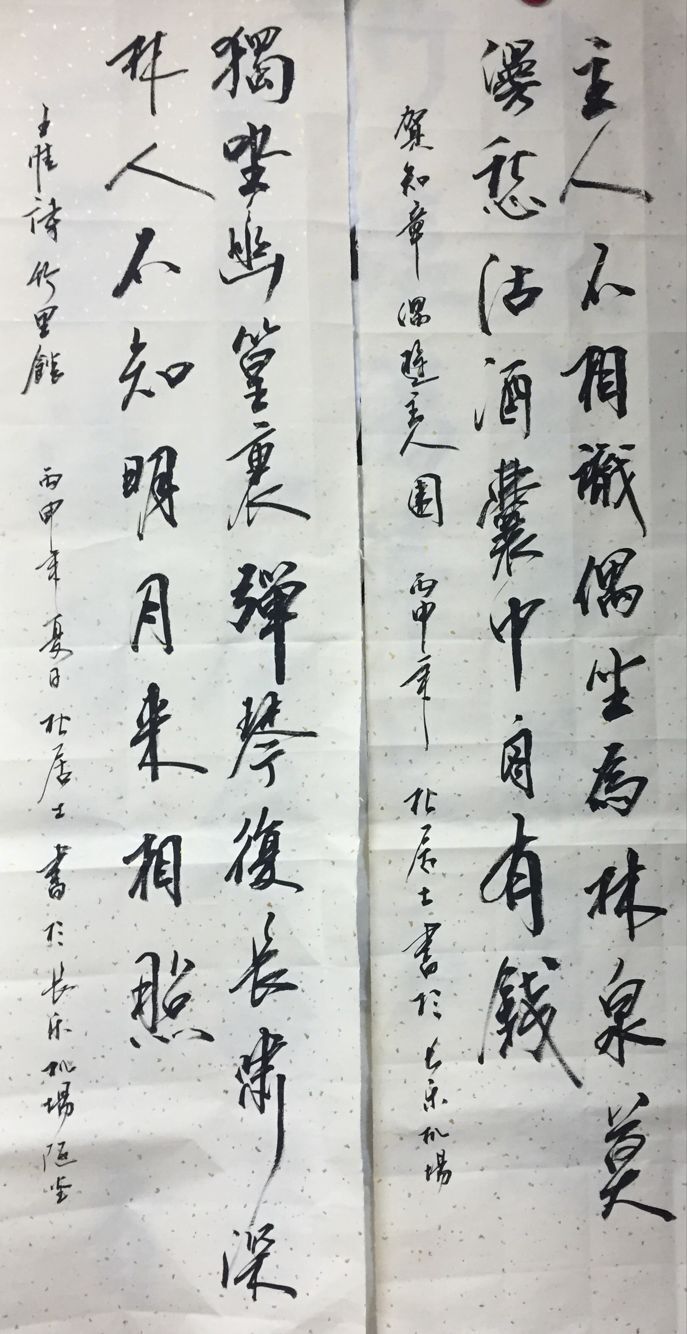 主人不相識偶坐為林泉莫
漫愁沽酒囊中自有錢
賀知章 偶題主人園 丙申年 居士書於长乐机場
獨坐幽篁裏彈琴復長嘯深
林人不知明月来相照
王惟詩竹里館 丙申年夏日 居士書於長乐机場陋室